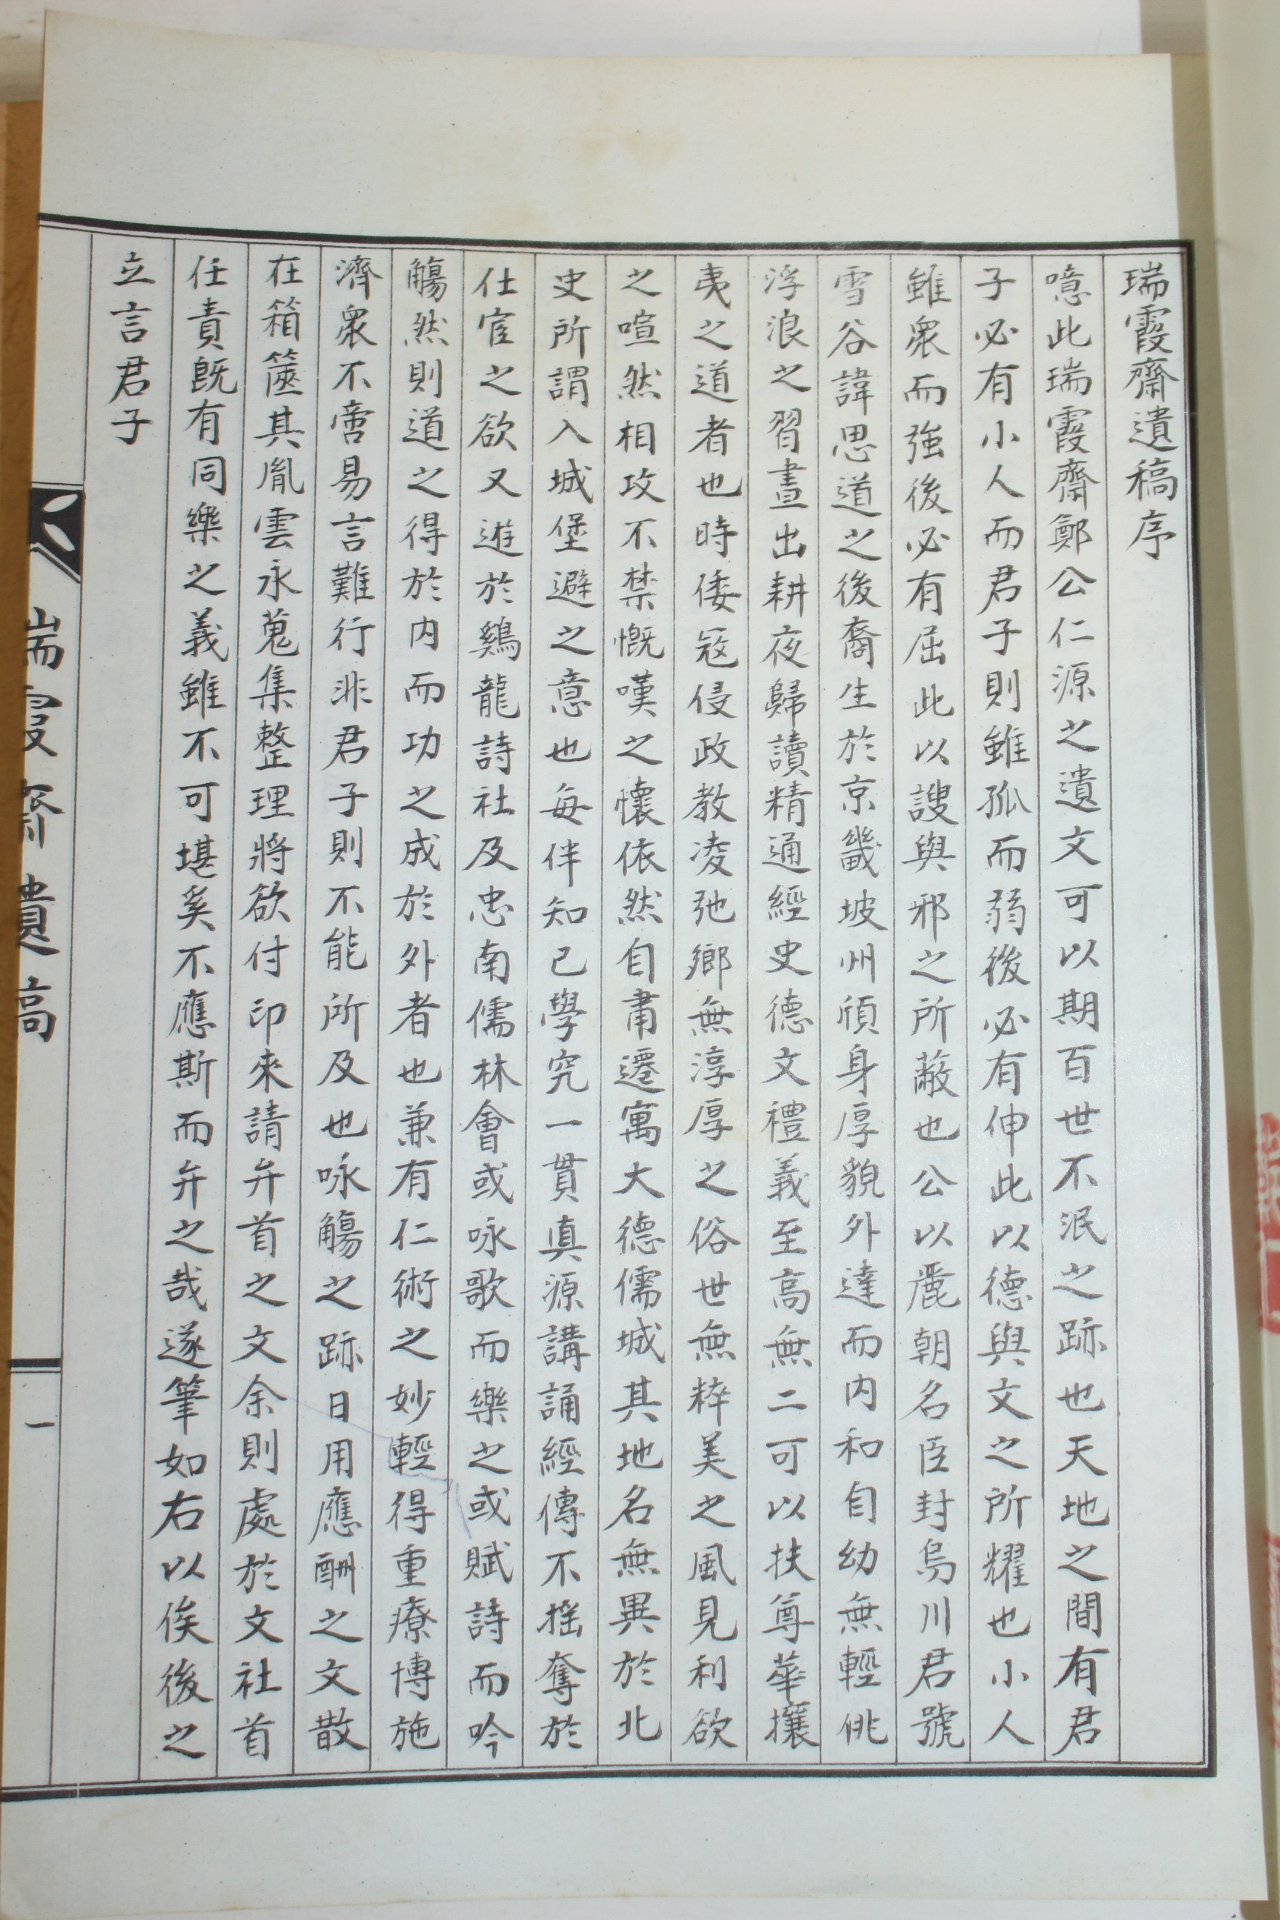 瑞霞齋遺稿序
噫此瑞霞齋鄭公仁源之遺文可以期百世不泯之跡也天地之間有君
子必有小人而君子則雖孤而弱後必有伸此以德與文之所耀也小人
雖衆而強後必有屈此以謏與邪之所蔽也公以麗朝名臣封烏川君號
雪谷諱思道之後裔生於京畿坡州頎身厚貌外達而內和自幼無輕佻
浮浪之習晝出耕夜歸讀精通經史德文禮義至高無二可以扶尊華攘
夷之道者也時倭寇侵政教凌弛鄉無淳厚之俗世無粹美之風見利欲
之喧然相攻不禁慨嘆之懷依然自甫遷寓大德儒城其地名無異於北
史所謂入城堡避之意也每伴知己學究一貫眞源講誦經傳不搖奪於
仕宦之欲又遊於鷄龍詩社及忠南儒林會或咏歌而樂之或賦詩而吟
觴然則道之得於内而功之成於外者也兼有仁術之妙輕得重療博施
濟衆不啻易言難行非君子則不能所及也咏觴之跡日用應酬之文散
在箱篋其胤雲永蒐集整理將欲付印來請弁首之文余則處於文社首
任責既有同樂之義雖不可堪奚不應斯而弁之哉遂筆如右以俟後之
立言君子
瑞霞齋遺稿
一